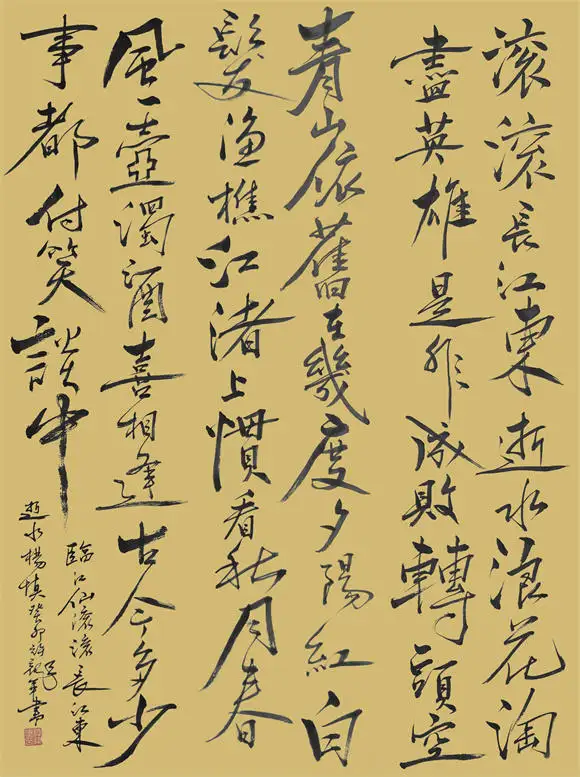 滚滚長江東逝水浪花淘
盡英雄是非成敗轉頭空
青山依舊在幾度夕陽紅白
髮渔樵江渚上慣看秋月春
風一壺濁酒喜相逢古今多少
事都付笑談中
臨江仙滚滚長江東
逝水楊慎癸卯書